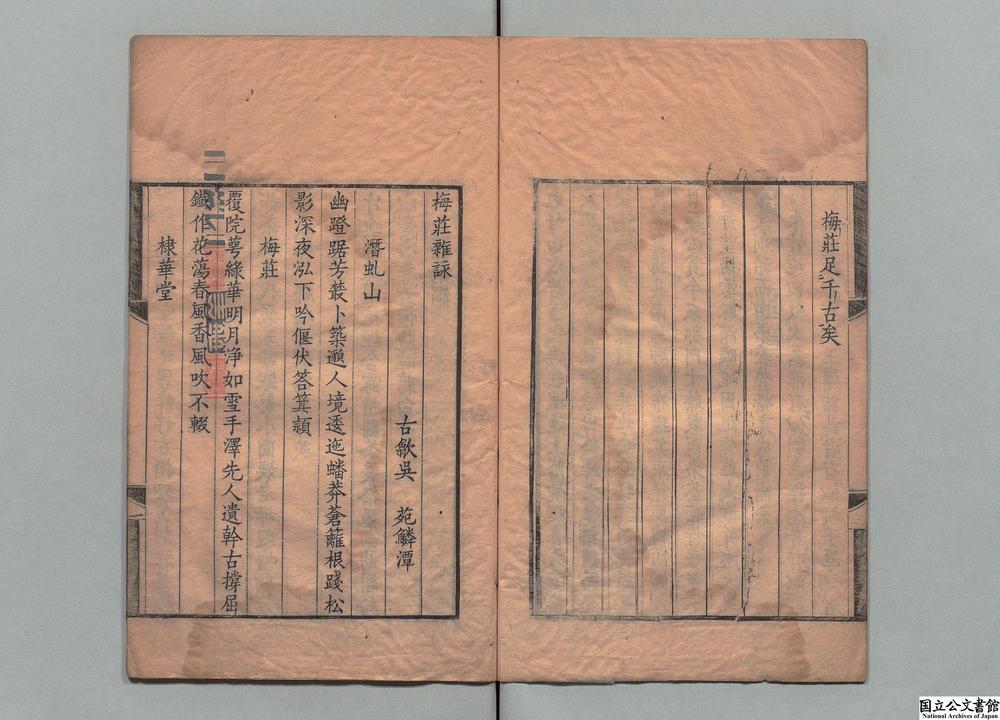 梅莊足千古矣
梅莊雜詠
古歙吳 苑鱗潭
潛虬山
幽蹬踞芳叢卜築遯人境逶迤蟠莽蒼籬根踐松
影深夜泓下吟偃伏答箕潁
梅莊
覆院萼綠華明月淨如雪手澤先人遺幹古撐屈
鐵作花蕩春風香風吹不輟
棣華堂
国立公文書館
National Archives of Japan